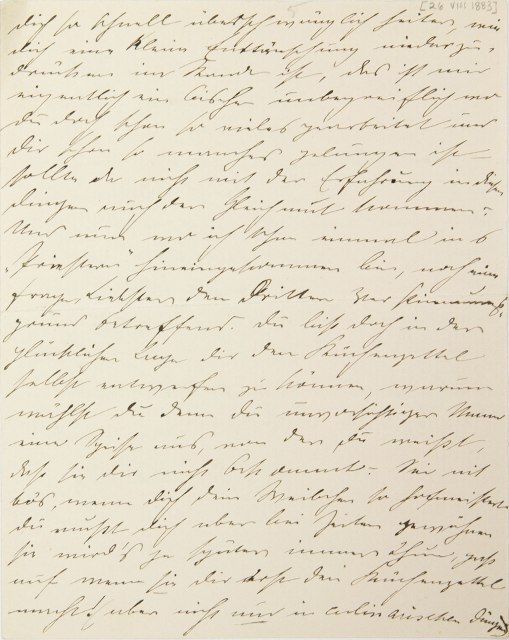 [26 VIII 1883]
dich so schnell überschwänglich heiter, wie
dich eine kleine Enttäuschung niederzu-
drücken im Stande ist, das ist mir
eigentlich ein bischen unbegreiflich wo
du doch schon so vieles gearbeitet und
dir schon so manches gelungen ist –
sollte da nicht mit der Erfahrung in diesen
Dingen auch der Gleichmut kommen?
Und nun wo ich schon einmal in's
hineingekommen bin, noch eine
Frage, Liebster, den Dritten
grund betreffend. Du bist doch in der
glücklichen Lage dir den Küchenzettel
selbst entwerfen zu können, warum
wählst du denn du unvorsichtiger Mann
eine Speise aus, von der du weißt,
daß sie dir nicht bekommt. Sei nit
bös, wenn dich dein Weibchen so hofmeistert
du mußt dich aber bei Zeiten gewöhnen
sie wird's ja später immer thun, paß
auf wenn sie dir erst den Küchenzettel
macht! aber nicht nur in culinarischen Dingen